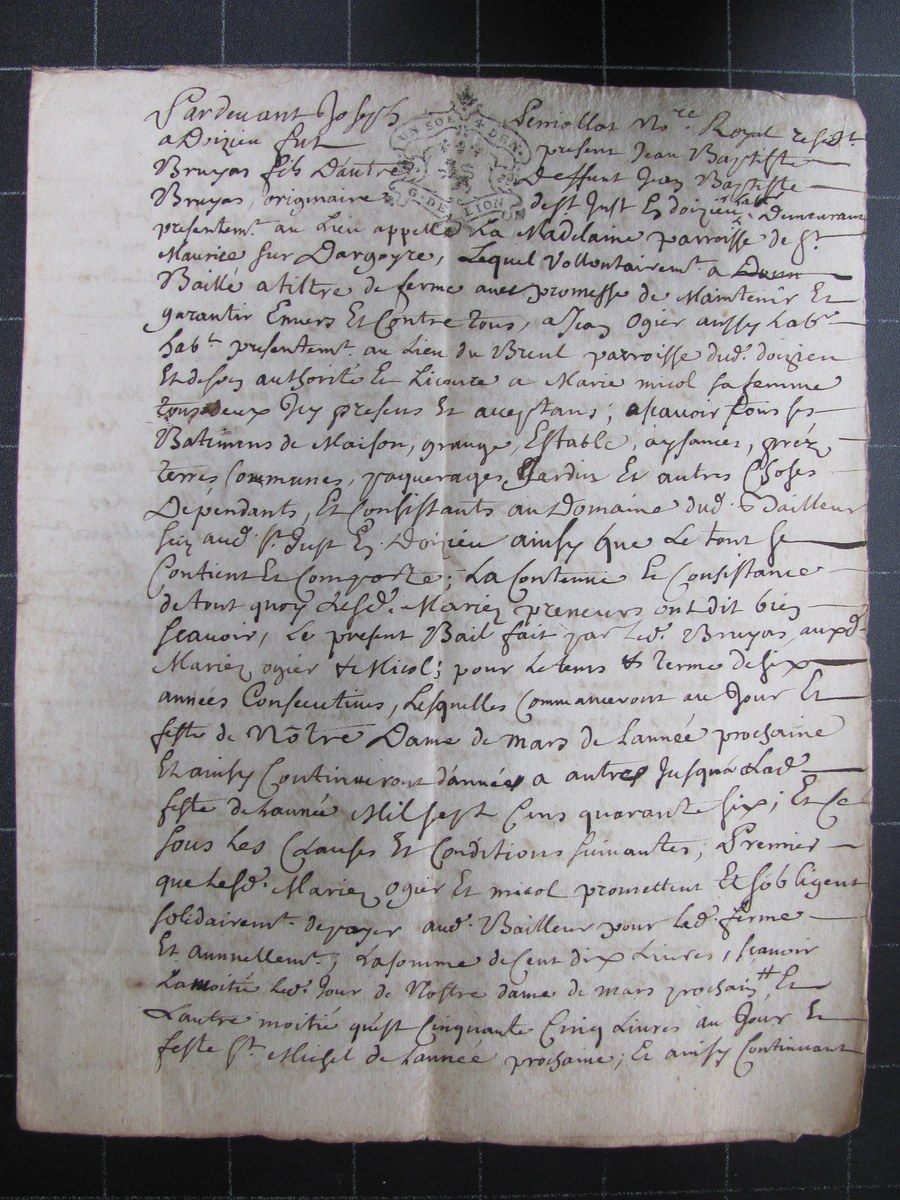 Pardevant Joseph Perriollat No.re Royal resid.t
UN SOL 4 DEN.
G. DE LION
a Doizieu fut present Jean Baptiste
Bruyas fils D'autre deffunt Jean Baptiste
Bruyas, originaire de St Just En doizieu, lab.r Demeurant
presentem.t au Lieu appellé La Madelaine parroisse de St
Maurice sur Dargoyre, Lequel Vollontairem.t a
Baillé a tiltre de ferme avec promesse de Maintenir Et
garantir Envers Et Contre tous, a Jean Ogier aussy Lab.r
hab.t presentem.t au Lieu du Breul parroisse dud. doizieu
Et de soy authorité Et Licence a Marie micol sa femme
tous deux Icy presens Et aceptans; ascavoir tous ses
Batimens de Maison, grange, Estable, aysances, préz
terres Communes, paquerages, Jardin Et autres Choses
Dépendants, Et Consistants au Domaine dud. Bailleur
sciz aud. St Just En Doizieu ainsy que Le tout se
Contient Et Comporte; La Contenue Et Consistance
de tout quoy Lesd. Mariez preneurs ont dit bien
scavoir, Le present Bail fait par Led. Bruyas auxd.
Mariez ogier & Micol; pour Le tems & terme de six
années Consecutives, Lesquelles Commanceront au Jour Et
feste de Nõtre Dame de mars de Lannée prochaine
Et ainsy Continueront d'années a autres Jusqua Lad.
feste de Lannée Mil sept Cens quarante six; Et Ce
sous Les Clauses Et Conditions suivantes; Premier
que Lesd. Mariez Ogier Et micol promettent Et sobligent
solidairem.t de payer aud. Bailleur pour Lad. ferme
Et annuellem.t; La somme de Cent dix Livres, scavoir
La moitié Led. Jour de Nostre dame de mars prochain Et
Lautre moitié quest Cinquante Cinq Livres au Jour Et
feste St Michel de Lanneé prochaine; Et ainsy Continuant